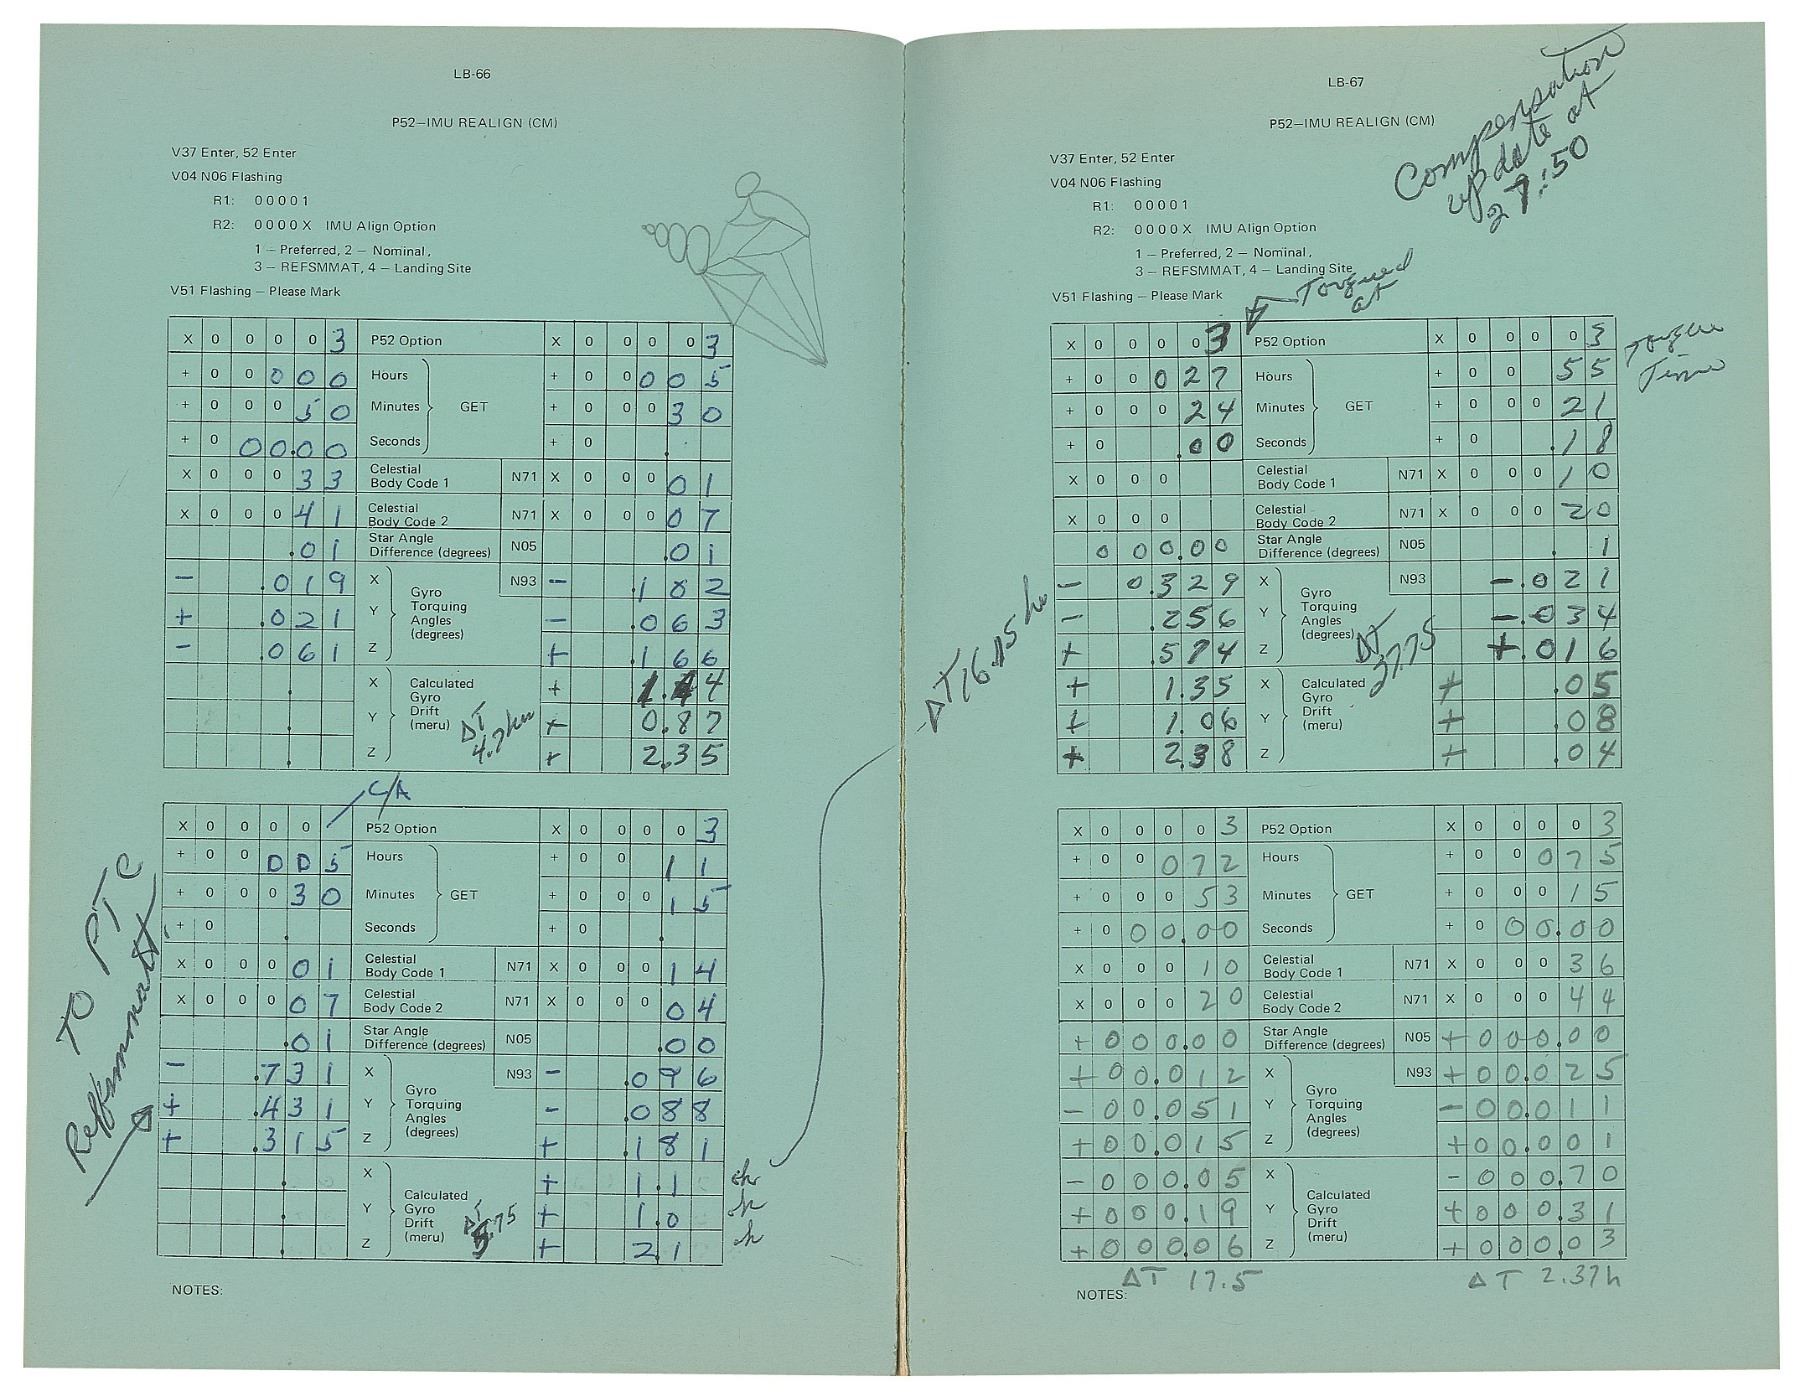 LB-66
P52—IMU REALIGN (CM)
V37 Enter, 52 Enter
V04 N06 Flashing
R1: 00001
R2: 0000X IMU Align Option
1 — Preferred, 2 — Nominal,
3 — REFSMMAT, 4 — Landing Site
V51 Flashing — Please Mark
X 0 0 0 0 3 P52 Option X 0 0 0 0 3
+ 0 0 0 0 0 Hours + 0 0 0 0 5
+ 0 0 0 5 0 Minutes GET + 0 0 0 3 0
+ 0 0 0.0 0 Seconds + 0 .
X 0 0 0 3 3 Celestial Body Code 1 N71 X 0 0 0 0 1
X 0 0 0 4 1 Celestial Body Code 2 N71 X 0 0 0 0 7
.0 1 Star Angle Difference (degrees) N05 .0 1
− .0 1 9 X N93 − .1 8 2
+ .0 2 1 Y Gyro Torquing Angles (degrees) − .0 6 3
− .0 6 1 Z + .1 6 6
X + 1. 4
Y Calculated Gyro Drift (meru) ΔT 4.7 hrs + 0.8 7
Z + 2.3 5
C/A
TO PTC
Refsmmat
X 0 0 0 0 P52 Option X 0 0 0 0 3
+ 0 0 0 0 5 Hours + 0 0 1 1
+ 0 0 0 3 0 Minutes GET + 0 0 0 1 5
+ 0 . Seconds + 0 .
X 0 0 0 0 1 Celestial Body Code 1 N71 X 0 0 0 1 4
X 0 0 0 0 7 Celestial Body Code 2 N71 X 0 0 0 0 4
.0 1 Star Angle Difference (degrees) N05 .0 0
− .7 3 1 X N93 − .0 9 6
+ .4 3 1 Y Gyro Torquing Angles (degrees) − .0 8 8
+ .3 1 5 Z + .1 8 1
X + 1.1
Y Calculated Gyro Drift (meru) ΔT 5.75 + 1.0
Z + 2.1
NOTES:
LB-67
Compensation
update at
27:50
P52—IMU REALIGN (CM)
V37 Enter, 52 Enter
V04 N06 Flashing
R1: 00001
R2: 0000X IMU Align Option
1 — Preferred, 2 — Nominal,
3 — REFSMMAT, 4 — Landing Site
V51 Flashing — Please Mark
Torqued
at
Torque
Time
X 0 0 0 0 3 P52 Option X 0 0 0 0 3
+ 0 0 0 2 7 Hours + 0 0 5 5
+ 0 0 0 2 4 Minutes GET + 0 0 0 2 1
+ 0 .0 0 Seconds + 0 .1 8
X 0 0 0 Celestial Body Code 1 N71 X 0 0 0 1 0
X 0 0 0 Celestial Body Code 2 N71 X 0 0 0 2 0
0 0 0.0 0 Star Angle Difference (degrees) N05 . 1
− 0.3 2 9 X N93 −.0 2 1
− .2 5 6 Y Gyro Torquing Angles (degrees) −.0 3 4
+ .5 7 4 Z +.0 1 6
ΔT 16.15 hr
+ 1.3 5 X + .0 5
+ 1.0 6 Y Calculated Gyro Drift (meru) ΔT 27.75 + .0 8
+ 2.3 8 Z + .0 4
X 0 0 0 0 3 P52 Option X 0 0 0 0 3
+ 0 0 0 7 2 Hours + 0 0 0 7 5
+ 0 0 0 5 3 Minutes GET + 0 0 0 1 5
+ 0 0 0.0 0 Seconds + 0 0 0.0 0
X 0 0 0 1 0 Celestial Body Code 1 N71 X 0 0 0 3 6
X 0 0 0 2 0 Celestial Body Code 2 N71 X 0 0 0 4 4
+ 0 0 0.0 0 Star Angle Difference (degrees) N05 + 0 0 0.0 0
+ 0 0.0 1 2 X N93 + 0 0.0 2 5
− 0 0.0 5 1 Y Gyro Torquing Angles (degrees) − 0 0.0 1 1
+ 0 0.0 1 5 Z + 0 0.0 0 1
− 0 0 0.0 5 X − 0 0 0.7 0
+ 0 0 0.1 9 Y Calculated Gyro Drift (meru) + 0 0 0.3 1
+ 0 0 0.0 6 Z + 0 0 0.0 3
ΔT 17.5 ΔT 2.37h
NOTES: